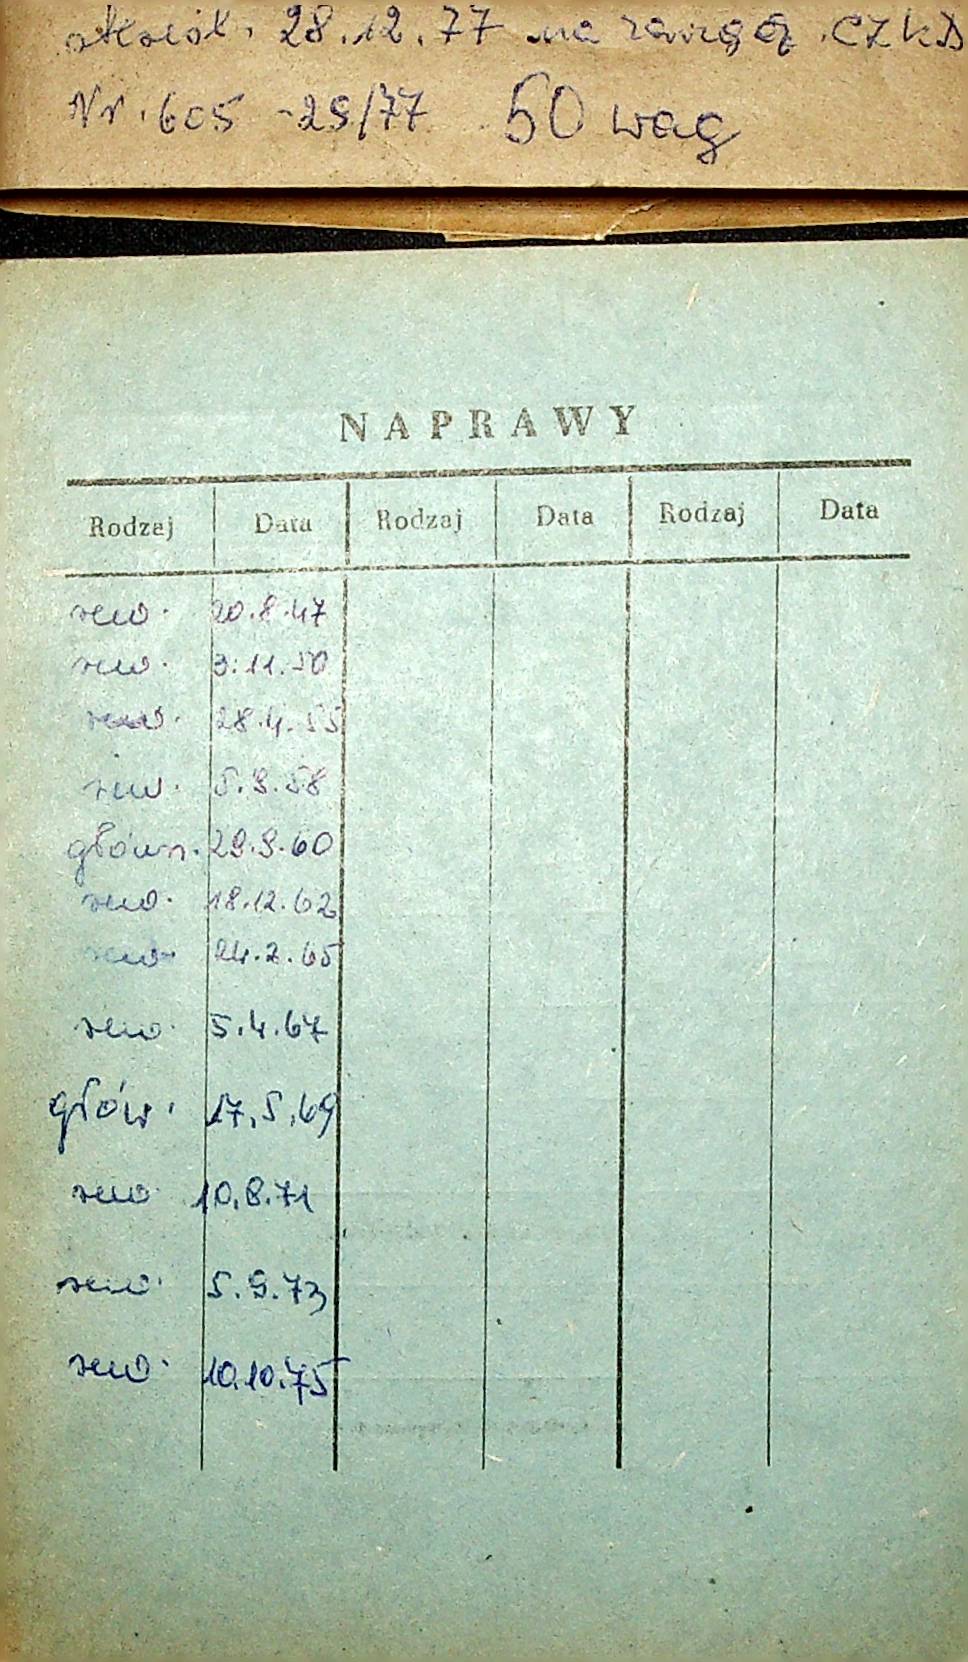 28.12.77 na CZKD
Nr. 605 -29/77 50 wag
NAPRAWY
Rodzaj Data Rodzaj Data Rodzaj Data
rew. 20.8.47
rew. 3.11.50
rew. 28.4.55
rew. 5.9.58
główn. 29.9.60
rew. 18.12.62
rew. 24.2.65
rew. 5.4.67
głów. 17.5.69
rew. 10.8.71
rew. 5.9.73
rew. 10.10.75